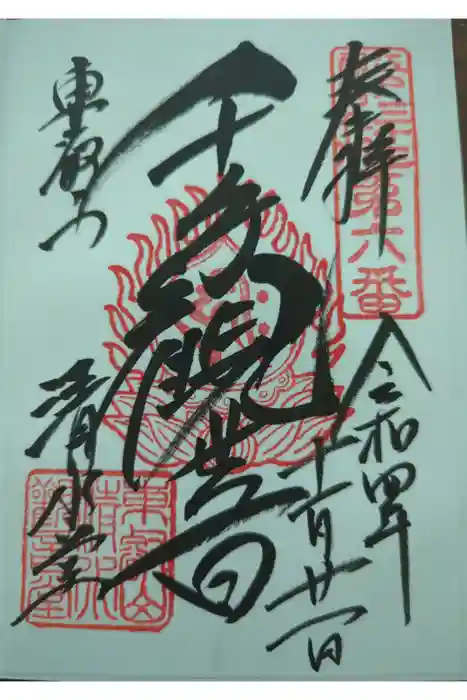 奉拝
第六番
令和四年
十一月廿一日
千手観世音
東叡山
清水堂
東叡山
清水
観音堂